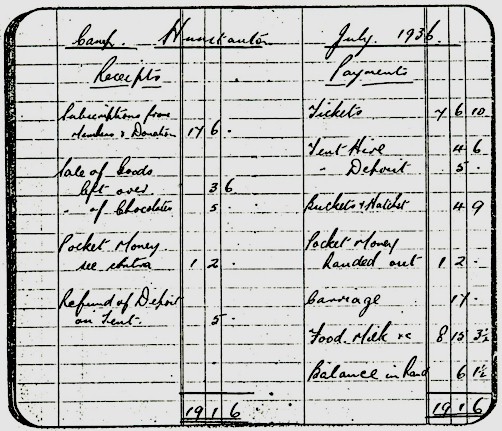 Camp. Hunstanton
Receipts
Subscriptions from
Members & Donation 17 6 .
Sale of Goods
left over 3 6
" of Chocolates 5 .
Pocket Money
see contra 1 2 .
Refund of Deposit
on Tent. 5 .
19 1 6
July. 1936.
Payments
Tickets 7 6 10
Tent Hire 4 6
" Deposit 5 .
Buckets & Hatchet 4 9
Pocket Money
handed out 1 2 .
Carriage 17 .
Food. Milk &c 8 15 3½
Balance in Hand 6 1½
19 1 6